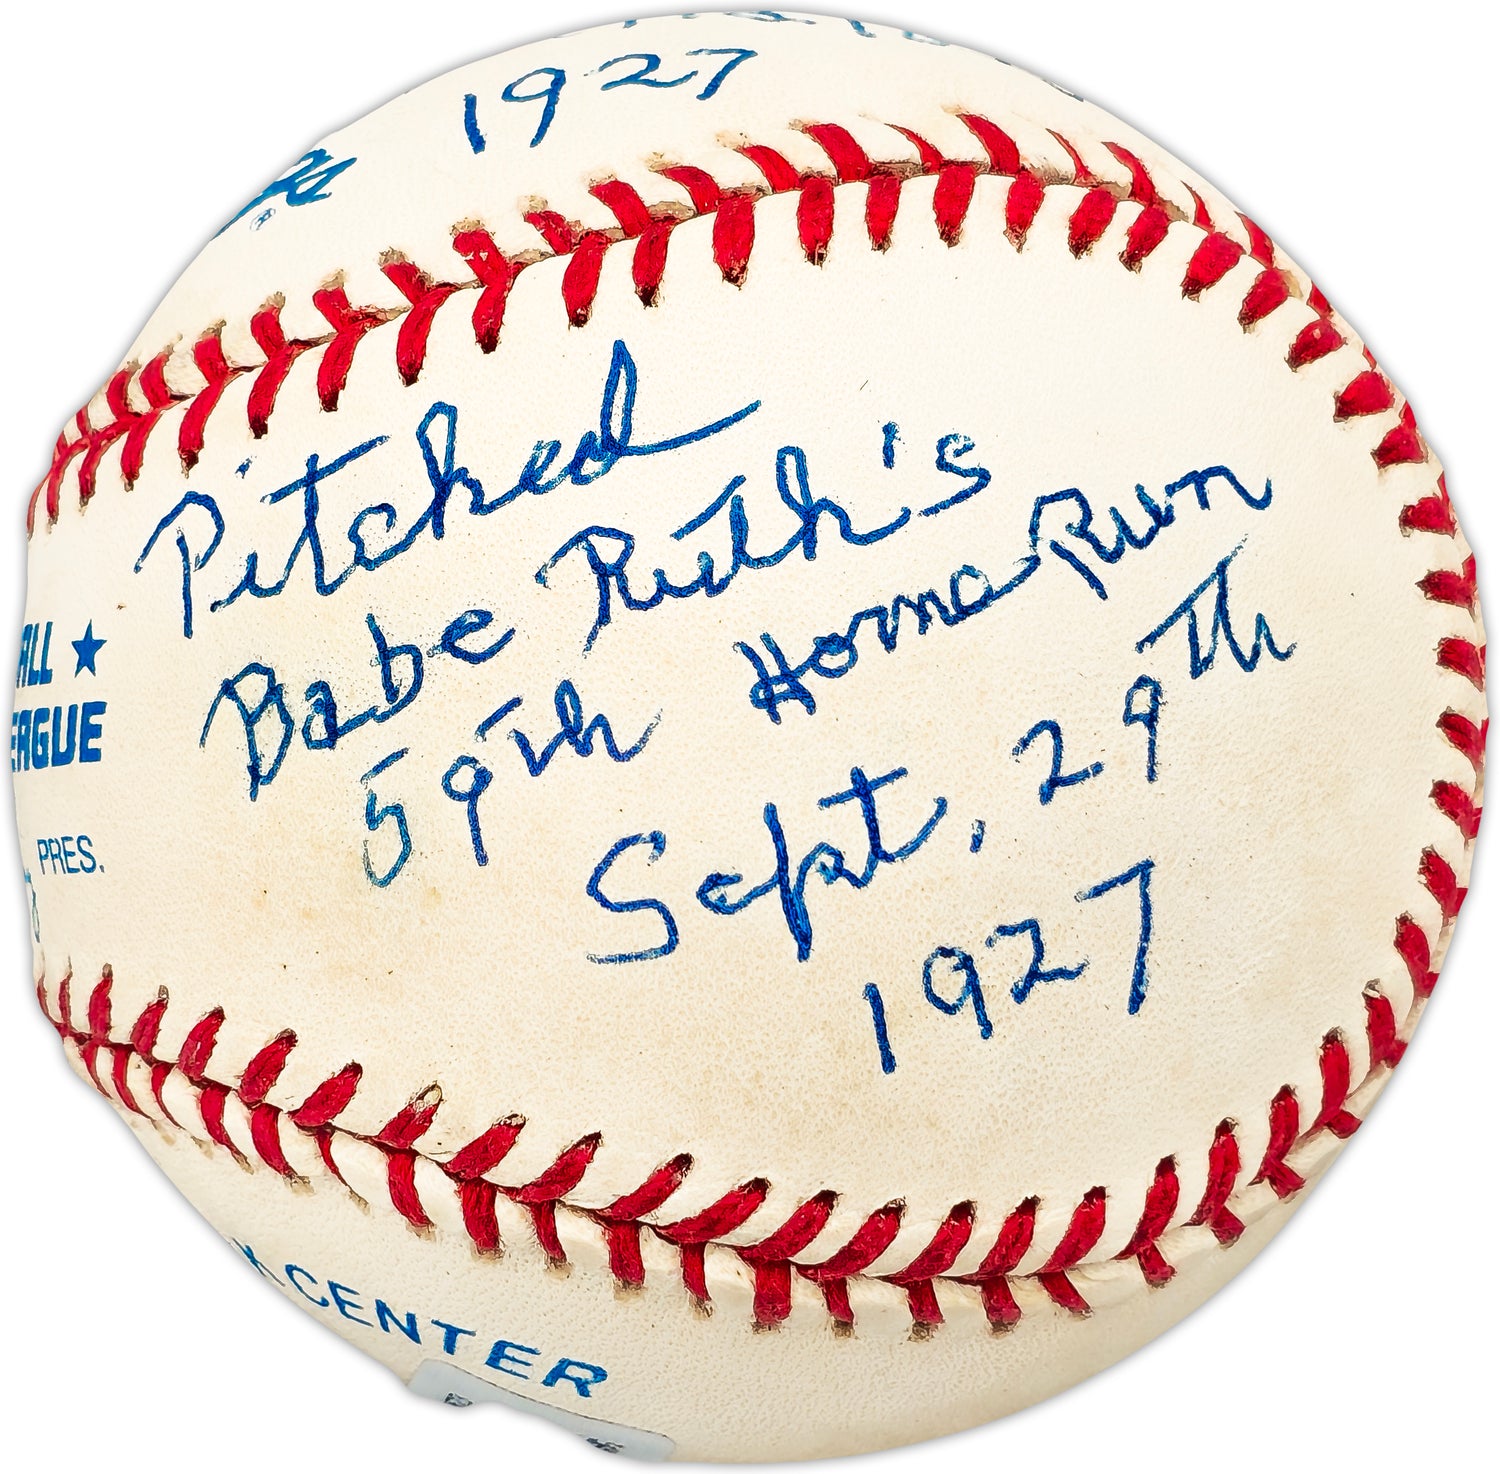 1927
Pitched
Babe Ruth's
59th Home Run
Sept, 29Th
1927
ALL ★
EAGUE
PRES.
CENTER